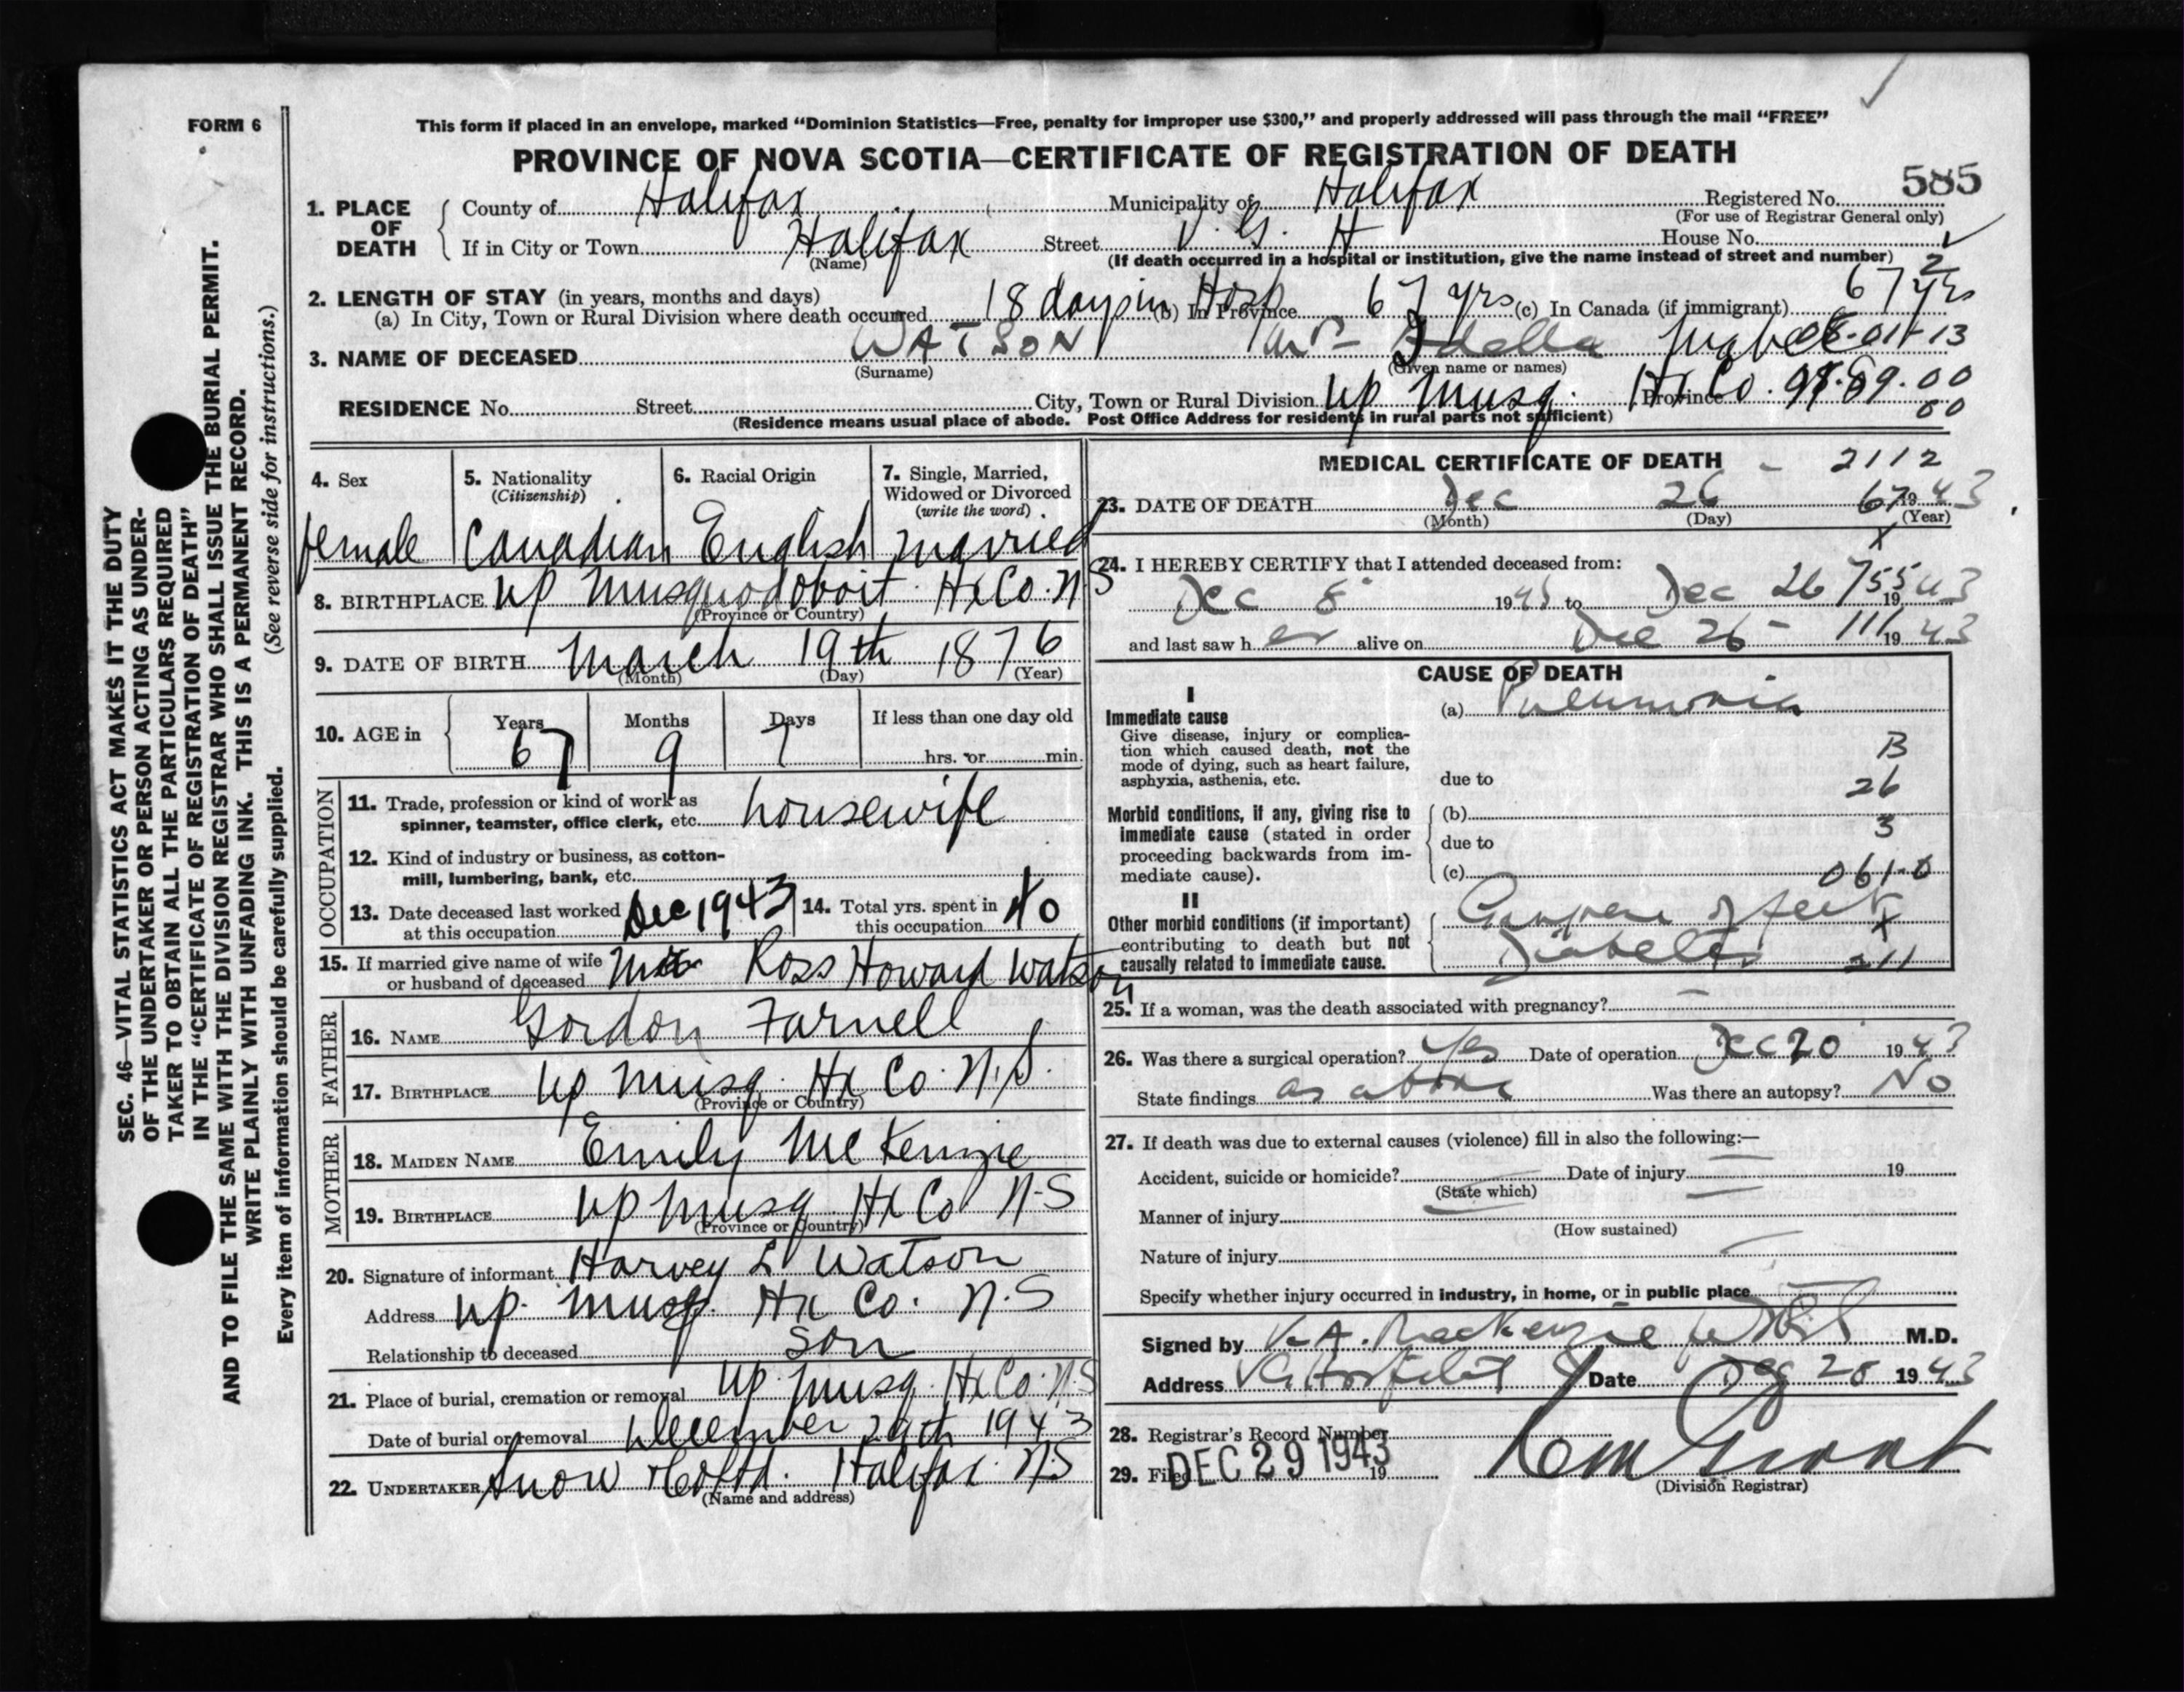 FORM 6
This form if placed in an envelope, marked “Dominion Statistics—Free, penalty for improper use $300,” and properly addressed will pass through the mail “FREE”
PROVINCE OF NOVA SCOTIA—CERTIFICATE OF REGISTRATION OF DEATH
585
1. PLACE OF DEATH
County of Halifax Municipality of Halifax Registered No.
(For use of Registrar General only)
If in City or Town Halifax Street V. G. H House No.
(Name) (If death occurred in a hospital or institution, give the name instead of street and number)
2. LENGTH OF STAY (in years, months and days)
(a) In City, Town or Rural Division where death occurred 18 days in Hosp (b) In Province 67 yrs (c) In Canada (if immigrant) 67 yrs
3. NAME OF DECEASED WATSON Mrs Adella 08-01-13
(Surname) (Given name or names)
RESIDENCE No. Street City, Town or Rural Division Up Musq. Hx Co. Province
(Residence means usual place of abode. Post Office Address for residents in rural parts not sufficient)
4. Sex female
5. Nationality (Citizenship) Canadian
6. Racial Origin English
7. Single, Married, Widowed or Divorced (write the word) married
8. BIRTHPLACE Up Musquodoboit Hx Co. N S
(Province or Country)
9. DATE OF BIRTH March 19th 1876
(Month) (Day) (Year)
10. AGE in Years 67 Months 9 Days 7 If less than one day old
hrs. or min.
OCCUPATION
11. Trade, profession or kind of work as
spinner, teamster, office clerk, etc. housewife
12. Kind of industry or business, as cotton-
mill, lumbering, bank, etc.
13. Date deceased last worked at this occupation Dec 1943
14. Total yrs. spent in this occupation 40
15. If married give name of wife
or husband of deceased Ross Howard Watson
FATHER
16. NAME Gordon Farnell
17. BIRTHPLACE Up Musq. Hx Co. N.S.
(Province or Country)
MOTHER
18. MAIDEN NAME Emily McKenzie
19. BIRTHPLACE Up Musq Hx Co N-S
(Province or Country)
20. Signature of informant Harvey L Watson
Address Up. Musq. Hx Co. N.S
Relationship to deceased son
21. Place of burial, cremation or removal Up. Musq. Hx Co. N S
Date of burial or removal December 29th 1943
22. UNDERTAKER Snow & Co Ltd. Halifax N S
(Name and address)
MEDICAL CERTIFICATE OF DEATH - 2112
23. DATE OF DEATH Dec 26 1943
(Month) (Day) (Year)
24. I HEREBY CERTIFY that I attended deceased from:
Dec 8 1943 to Dec 26 1943
and last saw her alive on Dec 26 - 1943
CAUSE OF DEATH
I
Immediate cause
Give disease, injury or complica-
tion which caused death, not the
mode of dying, such as heart failure,
asphyxia, asthenia, etc.
(a) Pneumonia
B
due to
26
Morbid conditions, if any, giving rise to
immediate cause (stated in order
proceeding backwards from im-
mediate cause).
(b)
3
due to
(c) 061-0
II
Other morbid conditions (if important)
contributing to death but not
causally related to immediate cause.
Gangrene of feet
X
Diabetes
211
25. If a woman, was the death associated with pregnancy? —
26. Was there a surgical operation? Yes Date of operation Dec 20 1943
State findings as above Was there an autopsy? No
27. If death was due to external causes (violence) fill in also the following:—
Accident, suicide or homicide? Date of injury 19
(State which)
Manner of injury
(How sustained)
Nature of injury
Specify whether injury occurred in industry, in home, or in public place
Signed by V. A. MacKenzie M.D.
Address V G Hospital Date Dec 28 1943
28. Registrar's Record Number
29. Filed DEC 29 1943 19
(Division Registrar)
SEC. 46—VITAL STATISTICS ACT MAKES IT THE DUTY
OF THE UNDERTAKER OR PERSON ACTING AS UNDER-
TAKER TO OBTAIN ALL THE PARTICULARS REQUIRED
IN THE “CERTIFICATE OF REGISTRATION OF DEATH”
AND TO FILE THE SAME WITH THE DIVISION REGISTRAR WHO SHALL ISSUE THE BURIAL PERMIT.
WRITE PLAINLY WITH UNFADING INK. THIS IS A PERMANENT RECORD.
Every item of information should be carefully supplied. (See reverse side for instructions.)